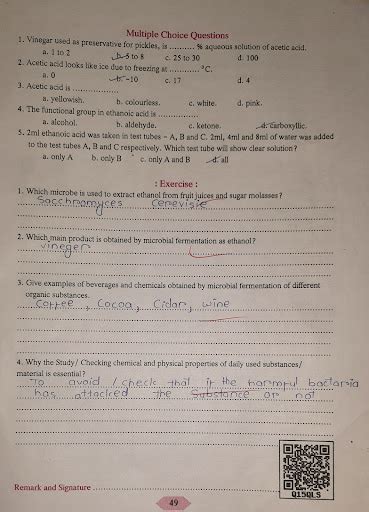 Multiple Choice Questions
1. Vinegar used as preservative for pickles, is .......... % aqueous solution of acetic acid.
a. 1 to 2 b. 5 to 8 c. 25 to 30 d. 100
2. Acetic acid looks like ice due to freezing at ............ °C.
a. 0 b. -10 c. 17 d. 4
3. Acetic acid is .................
a. yellowish. b. colourless. c. white. d. pink.
4. The functional group in ethanoic acid is .................
a. alcohol. b. aldehyde. c. ketone. d. carboxyllic.
5. 2ml ethanoic acid was taken in test tubes – A, B and C. 2ml, 4ml and 8ml of water was added
to the test tubes A, B and C respectively. Which test tube will show clear solution?
a. only A b. only B c. only A and B d. all
: Exercise :
1. Which microbe is used to extract ethanol from fruit juices and sugar molasses?
Sacchromyces Cerevisie
2. Which main product is obtained by microbial fermentation as ethanol?
vineger
3. Give examples of beverages and chemicals obtained by microbial fermentation of different
organic substances.
Coffee , Cocoa , Cidar , wine
4. Why the Study/ Checking chemical and physical properties of daily used substances/
material is essential?
To avoid / check that if the harmful bactaria
has attacked the Substance or not
Q15QLS
Remark and Signature
49